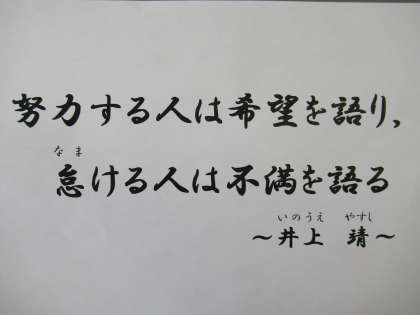 努力する人は希望を語り,
なま
怠ける人は不満を語る
いのうえ やすし
～井上 靖～